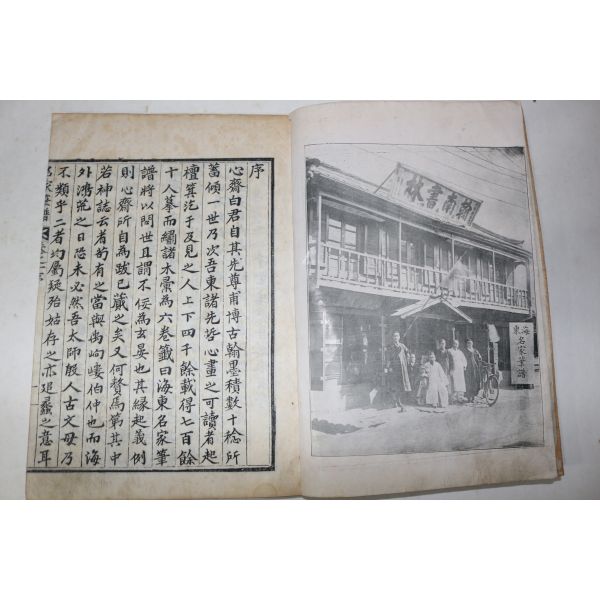 序
心齋白君自其先尊甫博古翰墨積數十稔所
蓄傾一世乃次吾東諸先哲心畫之可讀者起
檀箕汔于及見之人上下四千餘載得七百餘
十人摹而繡諸木彙為六卷籤曰海東名家筆
譜將以問世且謂不佞為玄晏也其緣起義例
則心齋所自為跋已蕆之矣又何贅焉第其中
若神誌云者茍有之當與禹岣嶁伯仲也而海
外鴻荒之日恐未必然吾太師殷人古文毋乃
不類乎二者均屬延殆姑存之亦
翰南書林
海東名家筆譜